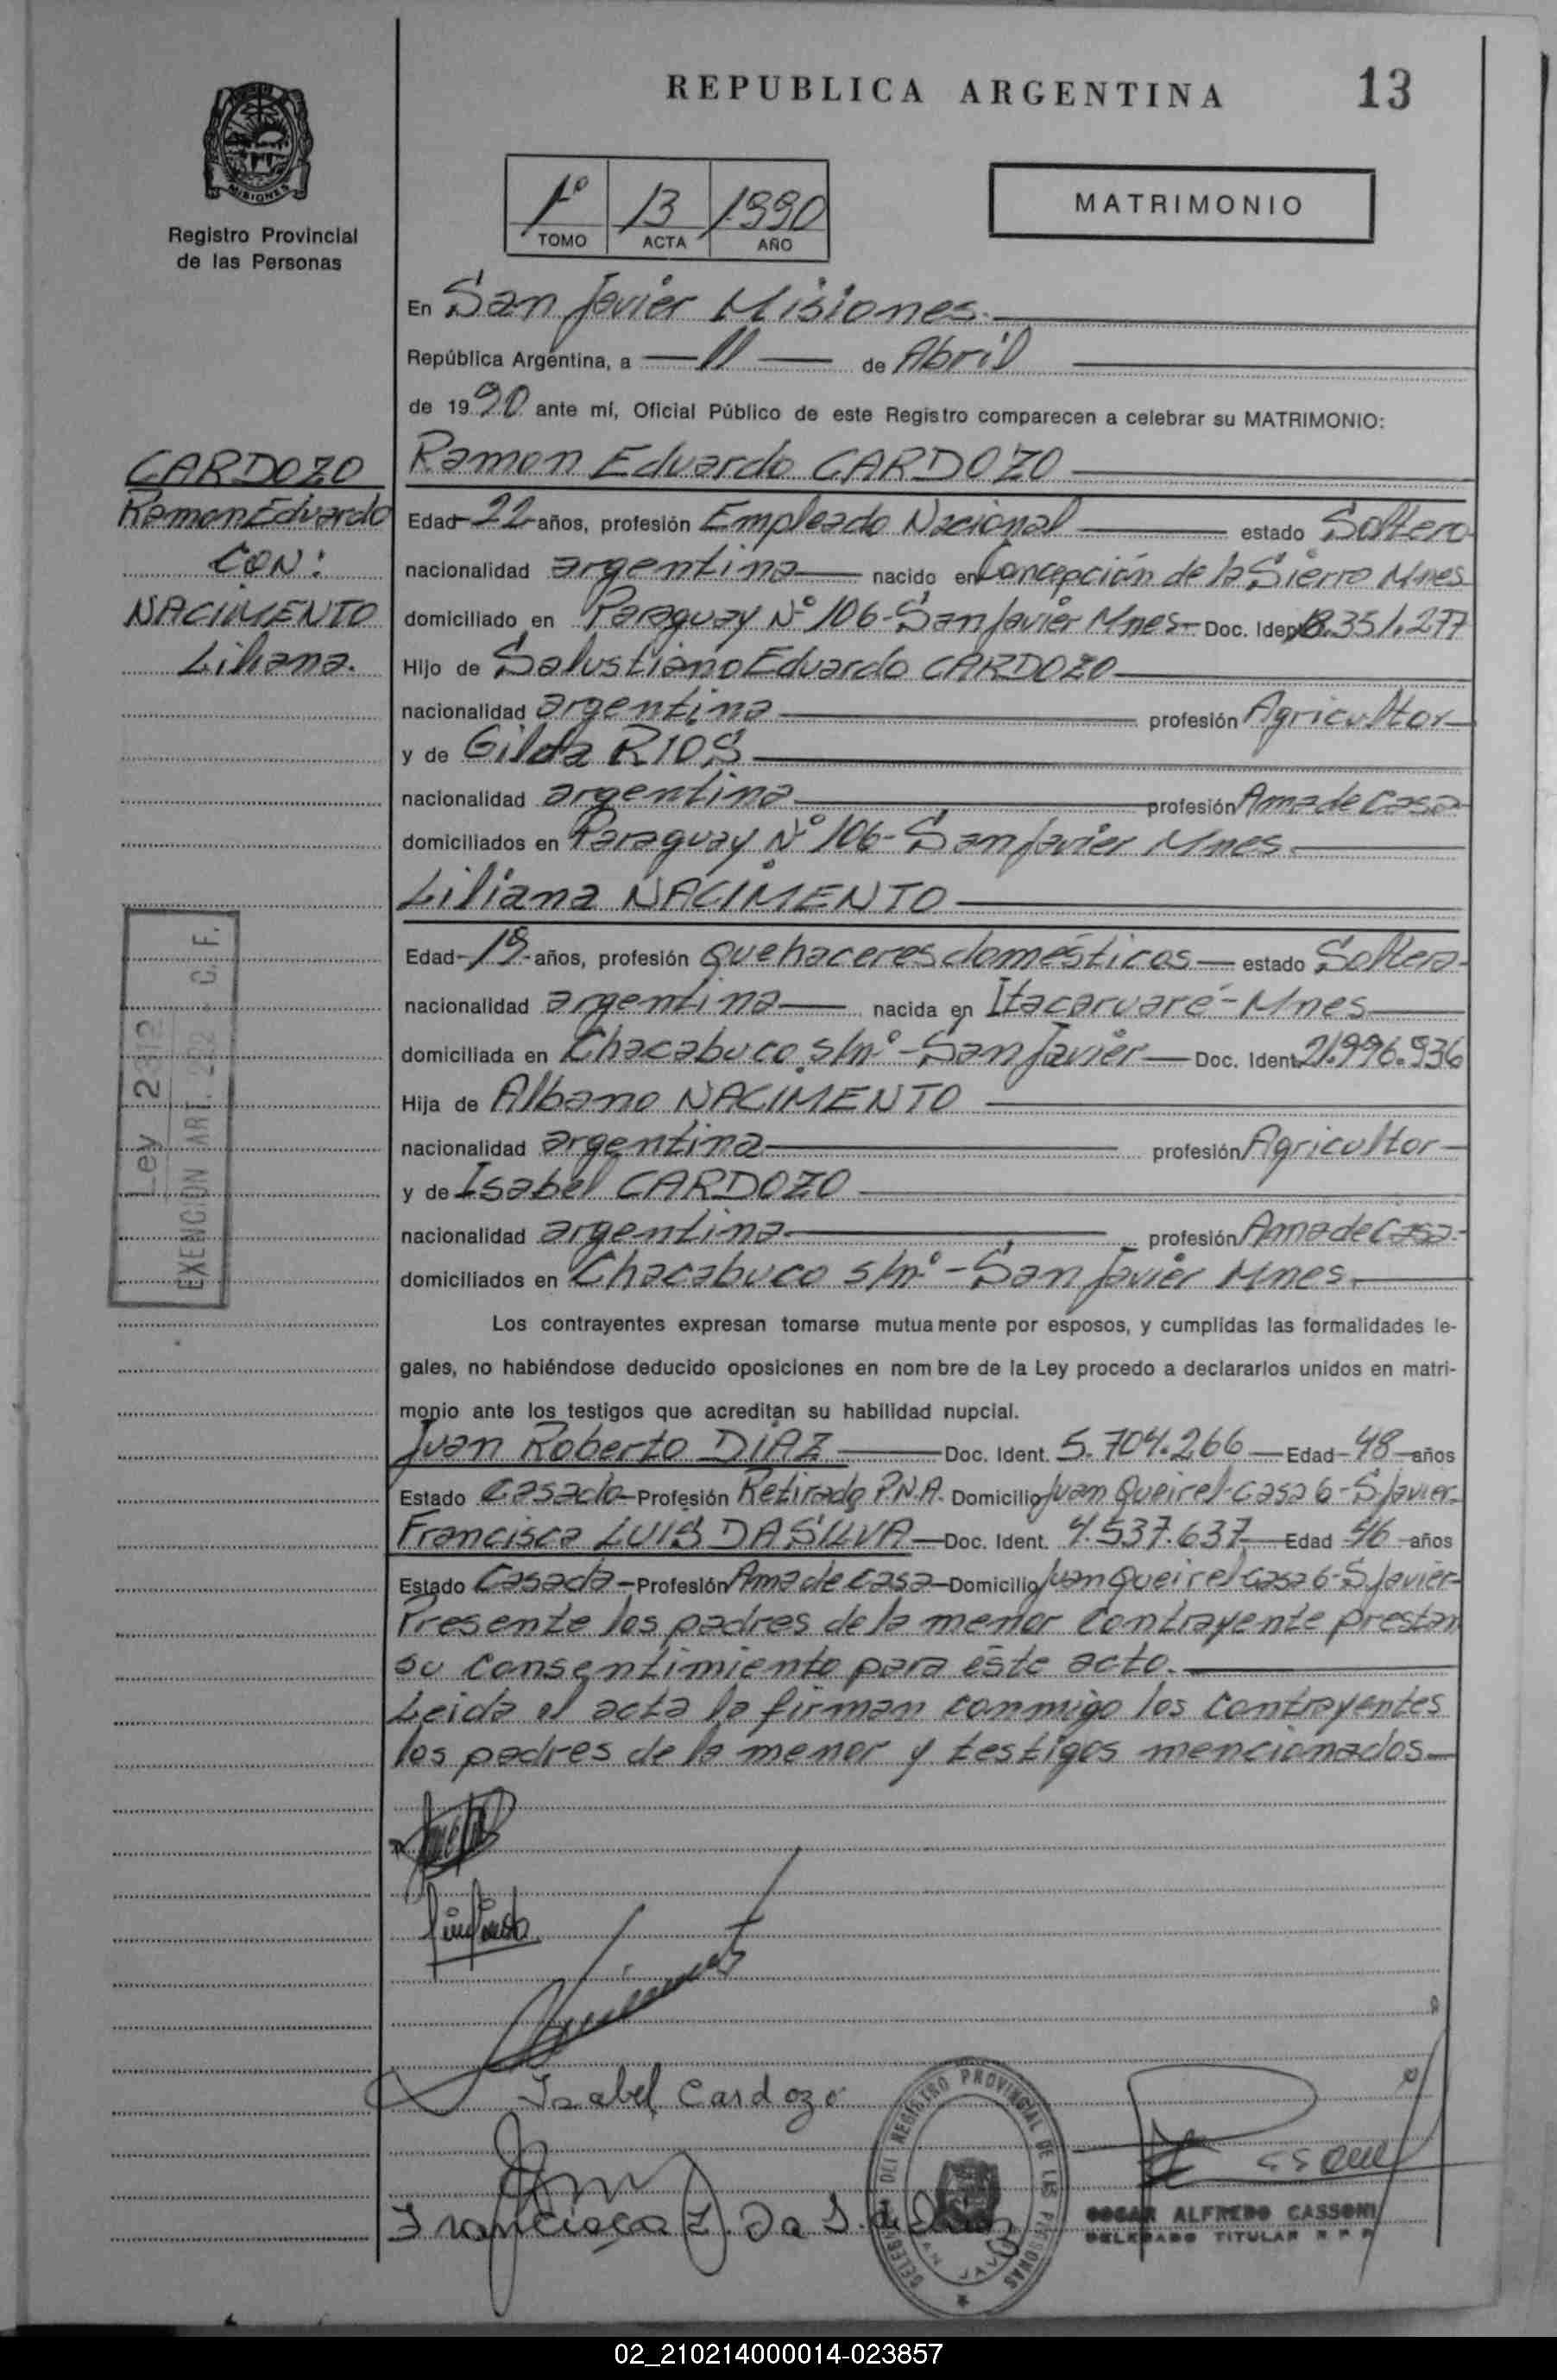 REPUBLICA ARGENTINA
13
MISIONES
Registro Provincial
de las Personas
1º 13 1990
TOMO ACTA AÑO
MATRIMONIO
En San Javier Misiones.
República Argentina, a 11 de Abril
de 1990 ante mí, Oficial Público de este Registro comparecen a celebrar su MATRIMONIO:
CARDOZO
Ramon Eduardo
CON:
NACIMENTO
Liliana.
Ramon Eduardo CARDOZO
Edad 22 años, profesión Empleado Nacional estado Soltero
nacionalidad argentina nacido en Concepción de la Sierra Mnes
domiciliado en Paraguay Nº 106-San Javier Mnes- Doc. Ident. 18.351.277
Hijo de Salustiano Eduardo CARDOZO
nacionalidad argentina profesión Agricultor
y de Gilda RIOS
nacionalidad argentina profesión Ama de Casa
domiciliados en Paraguay Nº 106-San Javier Mnes.
Liliana NACIMENTO
Edad 19 años, profesión Quehaceres domésticos estado Soltera
nacionalidad argentina nacida en Itacaruaré-Mnes
domiciliada en Chacabuco s/nº-San Javier Doc. Ident. 21.996.936
Hija de Albano NACIMENTO
nacionalidad argentina profesión Agricultor
y de Isabel CARDOZO
nacionalidad argentina profesión Ama de Casa
domiciliados en Chacabuco s/nº-San Javier Mnes.
Ley 2312
EXENCION ART. 292 C. F.
Los contrayentes expresan tomarse mutuamente por esposos, y cumplidas las formalidades le-
gales, no habiéndose deducido oposiciones en nombre de la Ley procedo a declararlos unidos en matri-
monio ante los testigos que acreditan su habilidad nupcial.
Juan Roberto DIAZ Doc. Ident. 5.704.266 Edad 48 años
Estado Casado Profesión Retirado P.N.A. Domicilio Juan Queirel-casa 6-S Javier
Francisca LUIS DA SILVA Doc. Ident. 4.537.637 Edad 46 años
Estado Casada Profesión Ama de casa Domicilio Juan Queirel casa 6-S Javier
Presente los padres de la menor contrayente prestan
su consentimiento para éste acto.
Leida el acta la firman conmigo los contrayentes
los padres de la menor y testigos mencionados
Isabel Cardozo
Francisca L. Da S. de Diaz
DELEGACION DEL REGISTRO PROVINCIAL DE LAS PERSONAS
SAN JAVIER
OSCAR ALFREDO CASSONI
DELEGADO TITULAR R P P
02_210214000014-023857